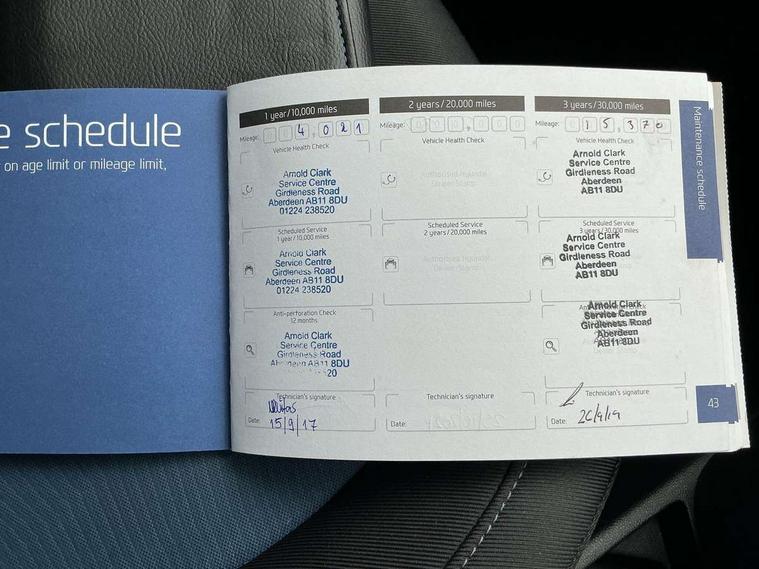 e schedule
on age limit or mileage limit,
1 year/10,000 miles
Mileage: 4,021
Vehicle Health Check
Arnold Clark
Service Centre
Girdleness Road
Aberdeen AB11 8DU
01224 238520
Scheduled Service
1 year/10,000 miles
Arnold Clark
Service Centre
Girdleness Road
Aberdeen AB11 8DU
01224 238520
Anti-perforation Check
12 months
Arnold Clark
Service Centre
Girdleness Road
AB11 8DU
20
Technician's signature
Date: 15/9/17
2 years/20,000 miles
Mileage:
Vehicle Health Check
Authorised Hyundai
Dealer Stamp
Scheduled Service
2 years/20,000 miles
Authorised Hyundai
Dealer Stamp
Technician's signature
Date:
3 years/30,000 miles
Mileage: 15,370
Vehicle Health Check
Arnold Clark
Service Centre
Girdleness Road
Aberdeen
AB11 8DU
Scheduled Service
3 years/30,000 miles
Arnold Clark
Service Centre
Girdleness Road
Aberdeen
AB11 8DU
Arnold Clark
Service Centre
Girdleness Road
Aberdeen
AB11 8DU
Technician's signature
Date: 26/9/19
Maintenance schedule
43